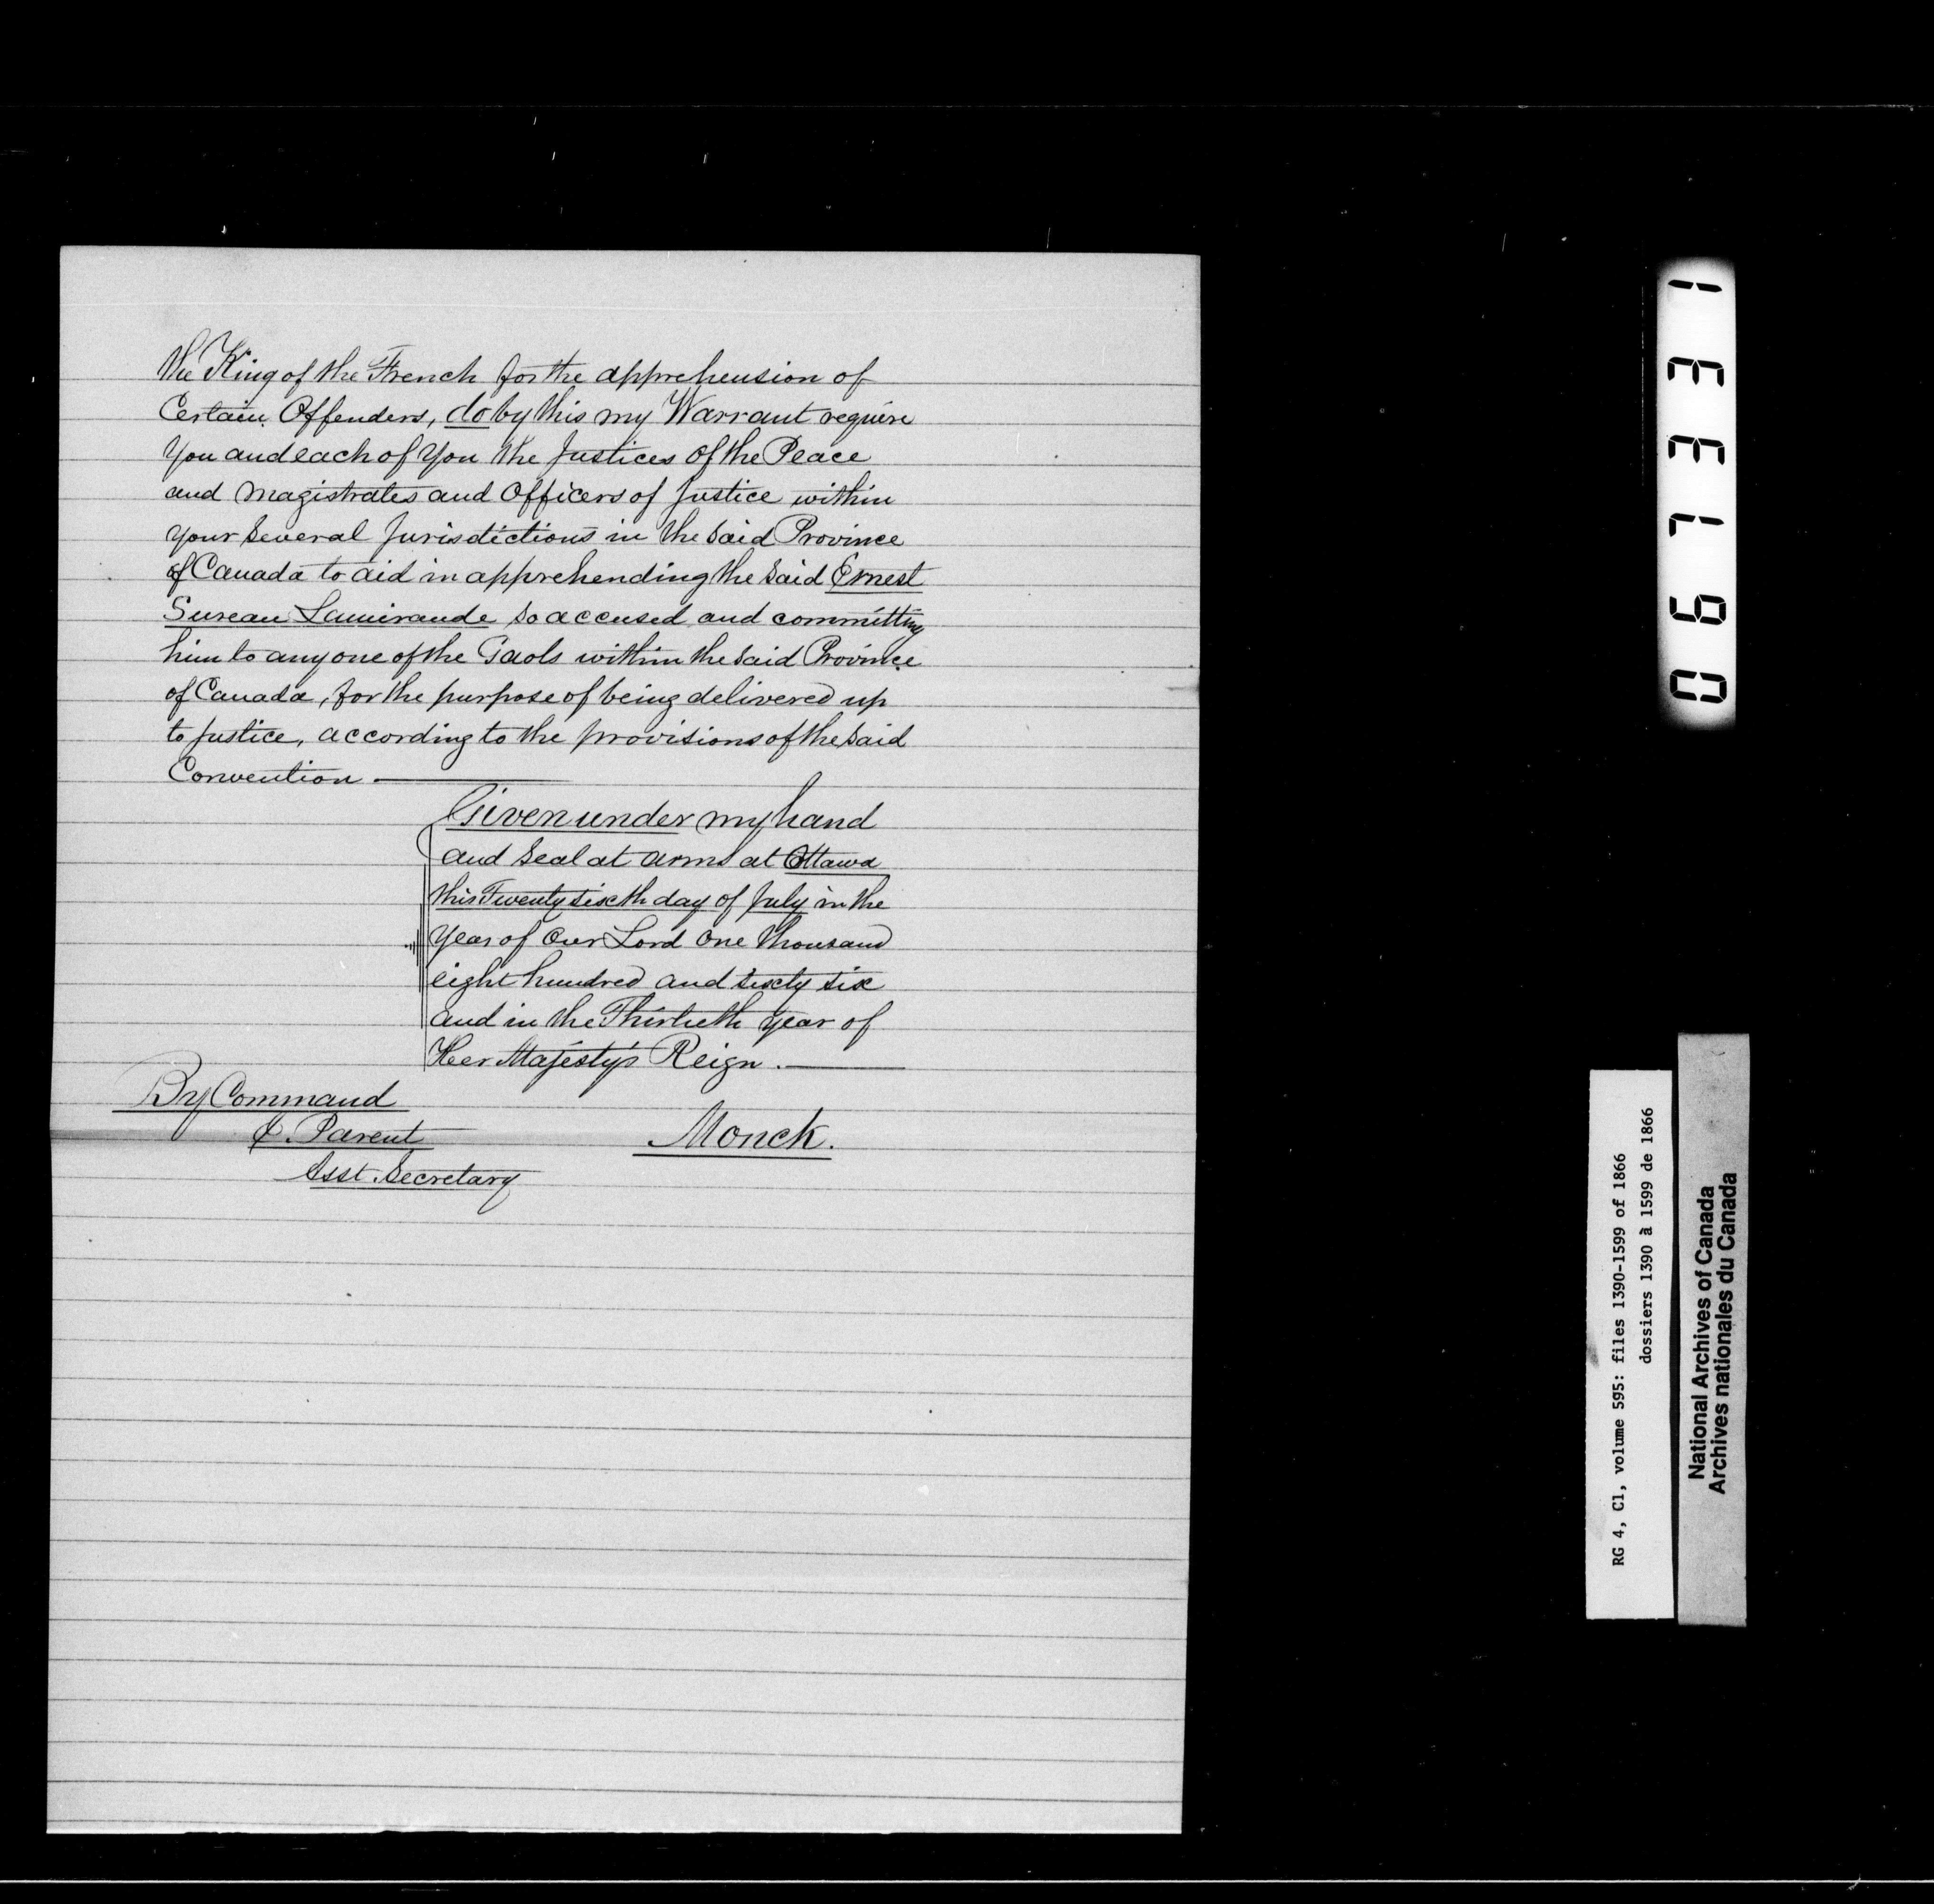 the King of the French for the apprehension of
Certain Offenders, do by this my Warrant require
You and each of You the Justices of the Peace
and Magistrates and Officers of Justice within
your Several Jurisdictions in the Said Province
of Canada to aid in apprehending the Said Ernest
Sureau Lamirande So accused and committing
him to any one of the Gaols within the Said Province
of Canada, for the purpose of being delivered up
to Justice, according to the provisions of the Said
Convention
Given under my hand
and Seal at arms at Ottawa
this Twenty Sixth day of July in the
Year of Our Lord One thousand
eight hundred and Sixty Six
and in the Thirtieth Year of
Her Majesty's Reign.
By Command
Parent
Monck.
Asst. Secretary
067331
RG 4, C1, volume 595: files 1390-1599 of 1866
dossiers 1390 à 1599 de 1866
National Archives of Canada
Archives nationales du Canada